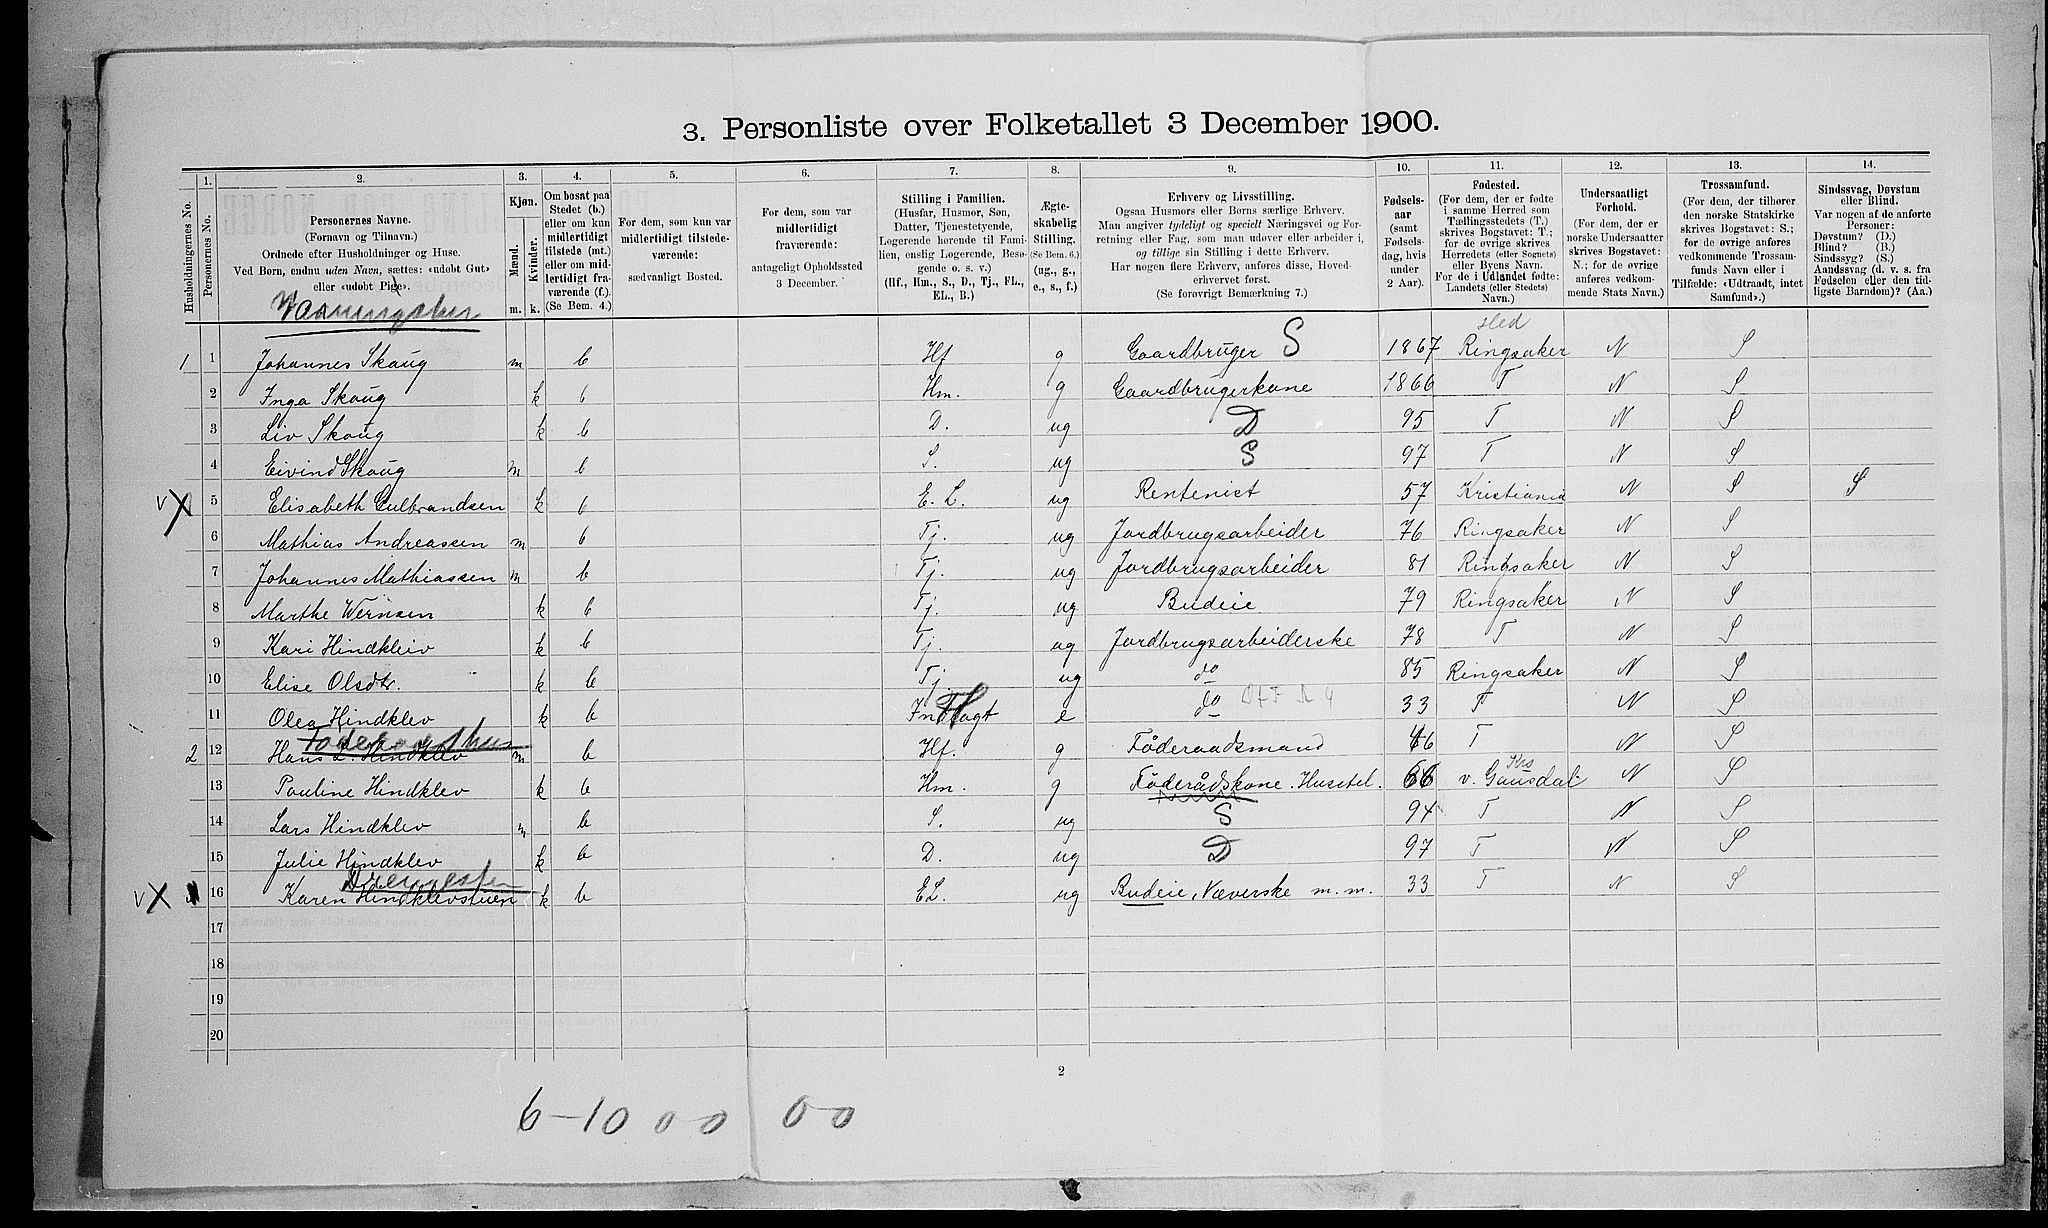 3. Personliste over Folketallet 3 December 1900.
Husholdningernes No.
1.
Personernes No.
2.
Personernes Navne.
(Fornavn og Tilnavn.)
Ordnede efter Husholdninger og Huse.
Ved Børn, endnu uden Navn, sættes: «udøbt Gut»
eller «udøbt Pige».
3.
Kjøn.
Mænd.
Kvinder.
m. k.
4.
Om bosat paa
Stedet (b.)
eller om kun
midlertidigt
tilstede (mt.)
eller om mid-
lertidigt fra-
værende (f.).
(Se Bem. 4.)
5.
For dem, som kun var
midlertidigt tilstede-
værende:
sædvanligt Bosted.
6.
For dem, som var
midlertidigt
fraværende:
antageligt Opholdssted
3 December.
7.
Stilling i Familien.
(Husfar, Husmor, Søn,
Datter, Tjenestetyende,
Logerende hørende til Fami-
lien, enslig Logerende, Besø-
gende o. s. v.)
(Hf., Hm., S., D., Tj., FL.,
EL., B.)
8.
Ægte-
skabelig
Stilling.
(Se Bem. 6.)
(ug., g.,
e., s., f.)
9.
Erhverv og Livsstilling.
Ogsaa Husmors eller Børns særlige Erhverv.
Man angiver tydeligt og specielt Næringsvei og For-
retning eller Fag, som man udøver eller arbeider i,
og tillige sin Stilling i dette Erhverv.
Har nogen flere Erhverv, anføres disse, Hoved-
erhvervet først.
(Se forøvrigt Bemærkning 7.)
10.
Fødsels-
aar
(samt
Fødsels-
dag, hvis
under
2 Aar).
11.
Fødested.
(For dem, der er fødte
i samme Herred som
Tællingsstedets (T.)
skrives Bogstavet: T.;
for de øvrige skrives
Herredets (eller Sognets)
eller Byens Navn.
For de i Udlandet fødte:
Landets (eller Stedets)
Navn.)
12.
Undersaatligt
Forhold.
(For dem, der er
norske Undersaatter
skrives Bogstavet:
N.; for de øvrige
anføres vedkom-
mende Stats Navn.)
13.
Trossamfund.
(For dem, der tilhører
den norske Statskirke
skrives Bogstavet: S.;
for de øvrige anføres
vedkommende Trossam-
funds Navn eller i
Tilfælde: «Udtraadt, intet
Samfund».)
14.
Sindssvag, Døvstum
eller Blind.
Var nogen af de anførte
Personer:
Døvstum? (D.)
Blind? (B.)
Sindssyg? (S.)
Aandssvag (d. v. s. fra
Fødselen eller den tid-
ligste Barndom)? (Aa.)
1 1 Johannes Skoug m b Hf g Gaardbruger S 1867 Ringsaker N S
2 Inga Skoug k b Hm. g Gaardbrugerkone 1866 T N S
3 Liv Skoug k b D. ug D 95 T N S
4 Eivind Skoug m b S. ug S 97 T N S
v X 5 Elisabeth Gulbrandsen k b E. L. ug Rentenist 57 Kristiania N S S
6 Mathias Andreassen m b Tj. ug Jordbrugsarbeider 76 Ringsaker N S
7 Johannes Mathiassen m b Tj. ug Jordbrugsarbeider 81 Ringsaker N S
8 Marthe Wernsen k b Tj. ug Budeie 79 Ringsaker N S
9 Kari Hindkleiv k b Tj. ug Jordbrugsarbeiderske 78 T N S
10 Elise Olsdtr. k b Tj. ug do 85 Ringsaker N S
11 Olea Hindklev k b e do 33 T N S
2 12 Hans L. Hindklev m b Hf. g Föderaadsmand 46 T N S
13 Pauline Hindklev k b Hm. g Föderådskone. Husstel. 66 v. Gausdal Krs N S
14 Lars Hindklev m b S. ug S 94 T N S
15 Julie Hindklev k b D. ug D 97 T N S
v X 16 Karen Hindklevstuen k b EL. ug Budeie, Væverske m. m. 33 T N S
17
18
19
20
2
6-10 0 0 0 0